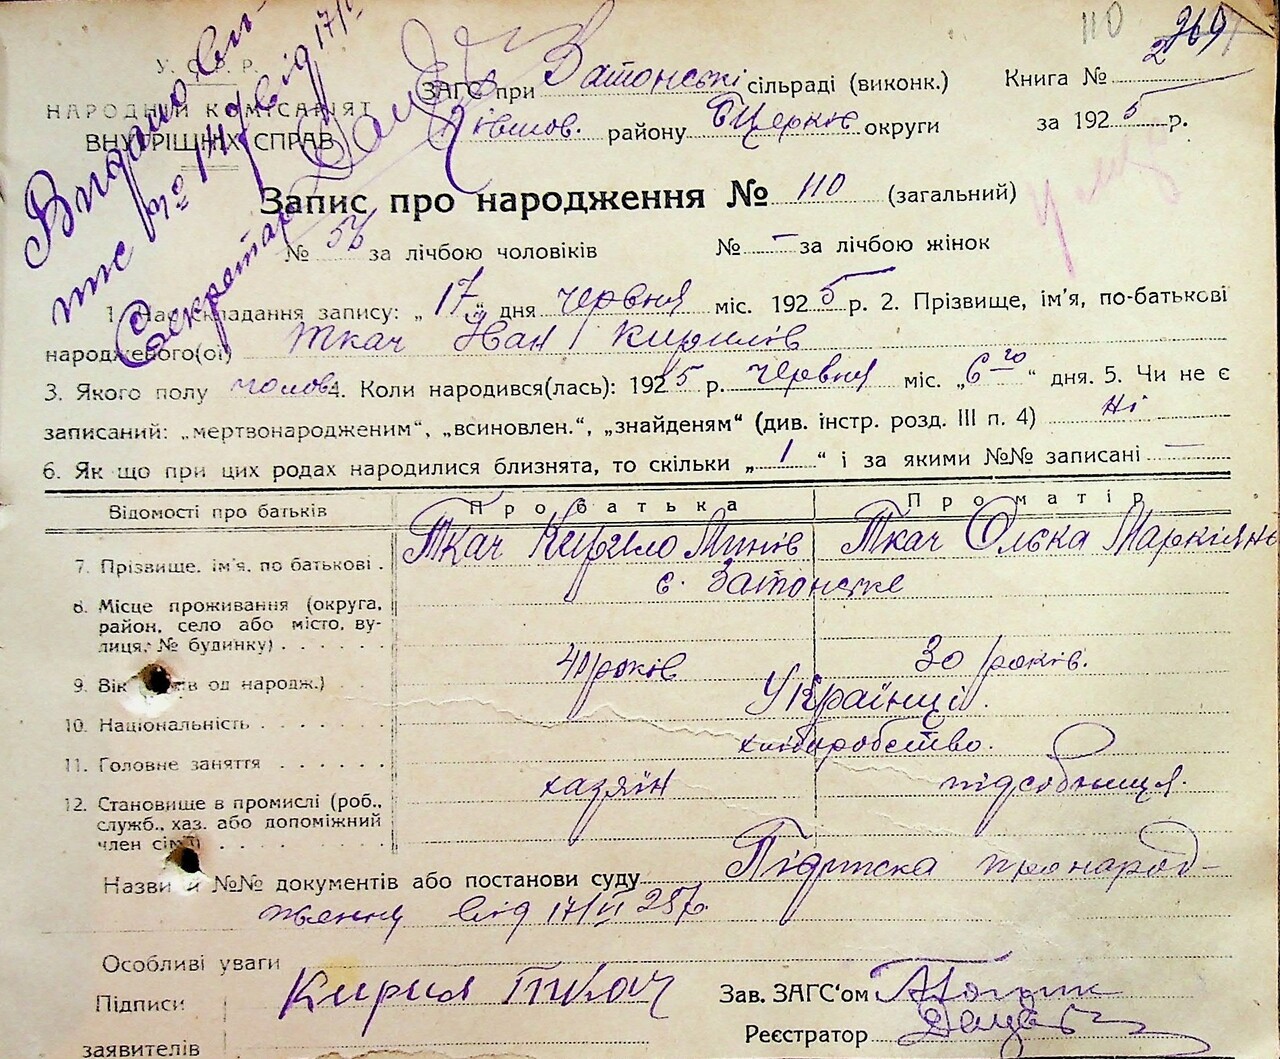 110
269
У. С. Р. Р.
НАРОДНИЙ КОМІСАРІЯТ
ВНУТРІШНІХ СПРАВ
Видано ви-
тяг № 141 від 17/
Секретар
ЗАГС при Затонські сільраді (виконк.)
району БЦерків округи
Книга № 2
за 1925 р.
Запис про народження № 110 (загальний)
№ 56 за лічбою чоловіків № — за лічбою жінок
1. Час складання запису: „17“ дня червня міс. 1925 р. 2. Прізвище, ім'я, по-батькові
народженого(ої) Ткач Іван Кирилів
3. Якого полу чолов 4. Коли народився(лась): 1925 р. червня міс. „6го“ дня. 5. Чи не є
записаний: „мертвонародженим“, „всиновлен.“, „знайденям“ (див. інстр. розд. III п. 4) Ні
6. Як що при цих родах народилися близнята, то скільки „1“ і за якими №№ записані —
Відомості про батьків Про батька Про матір
7. Прізвище, ім'я, по батькові. Ткач Кирило Минів Ткач Олєка Маркіян
8. Місце проживання (округа, район, село або місто, вулиця, № будинку) с. Затонське
9. Вік (років од народж.) 40 років 30 років.
10. Національність Українці.
11. Головне заняття хліборобство.
12. Становище в промислі (роб., служб., хаз. або допоміжний член сім'ї) хазяїн підсобниця.
Назви й №№ документів або постанови суду Підписка про народ-
женну від 17/VI 25р.
Особливі уваги
Підписи заявителів Кирил Ткач
Зав. ЗАГС'ом
Реєстратор